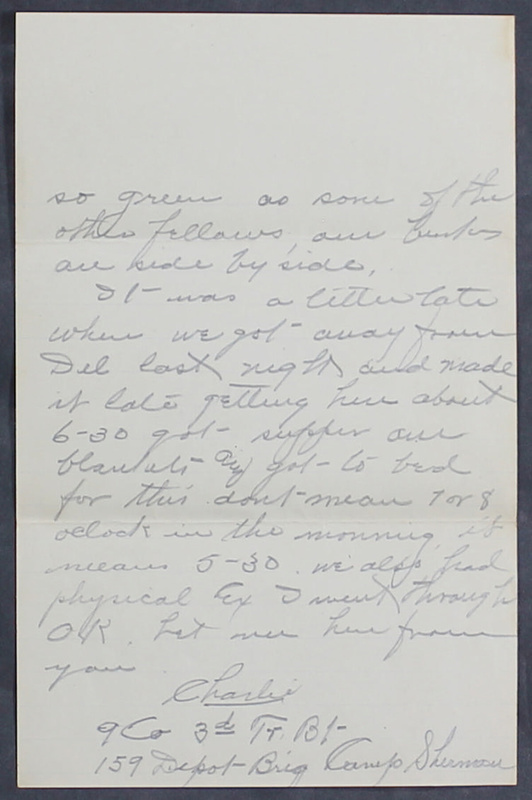 so green as some of the
other fellows, our bunks
are side by side.
It was a litter late
when we got away from
Del last night and made
it late getting here about
6-30 got supper our
blankets and got to bed
for this dont mean 7 or 8
oclock in the morning it
means 5-30. we also had
physical Ex I went through
O.K. Let me hear from
you
Charlie
9 Co 3d Tr. Bt
159 Depot Brig Camp Sherman